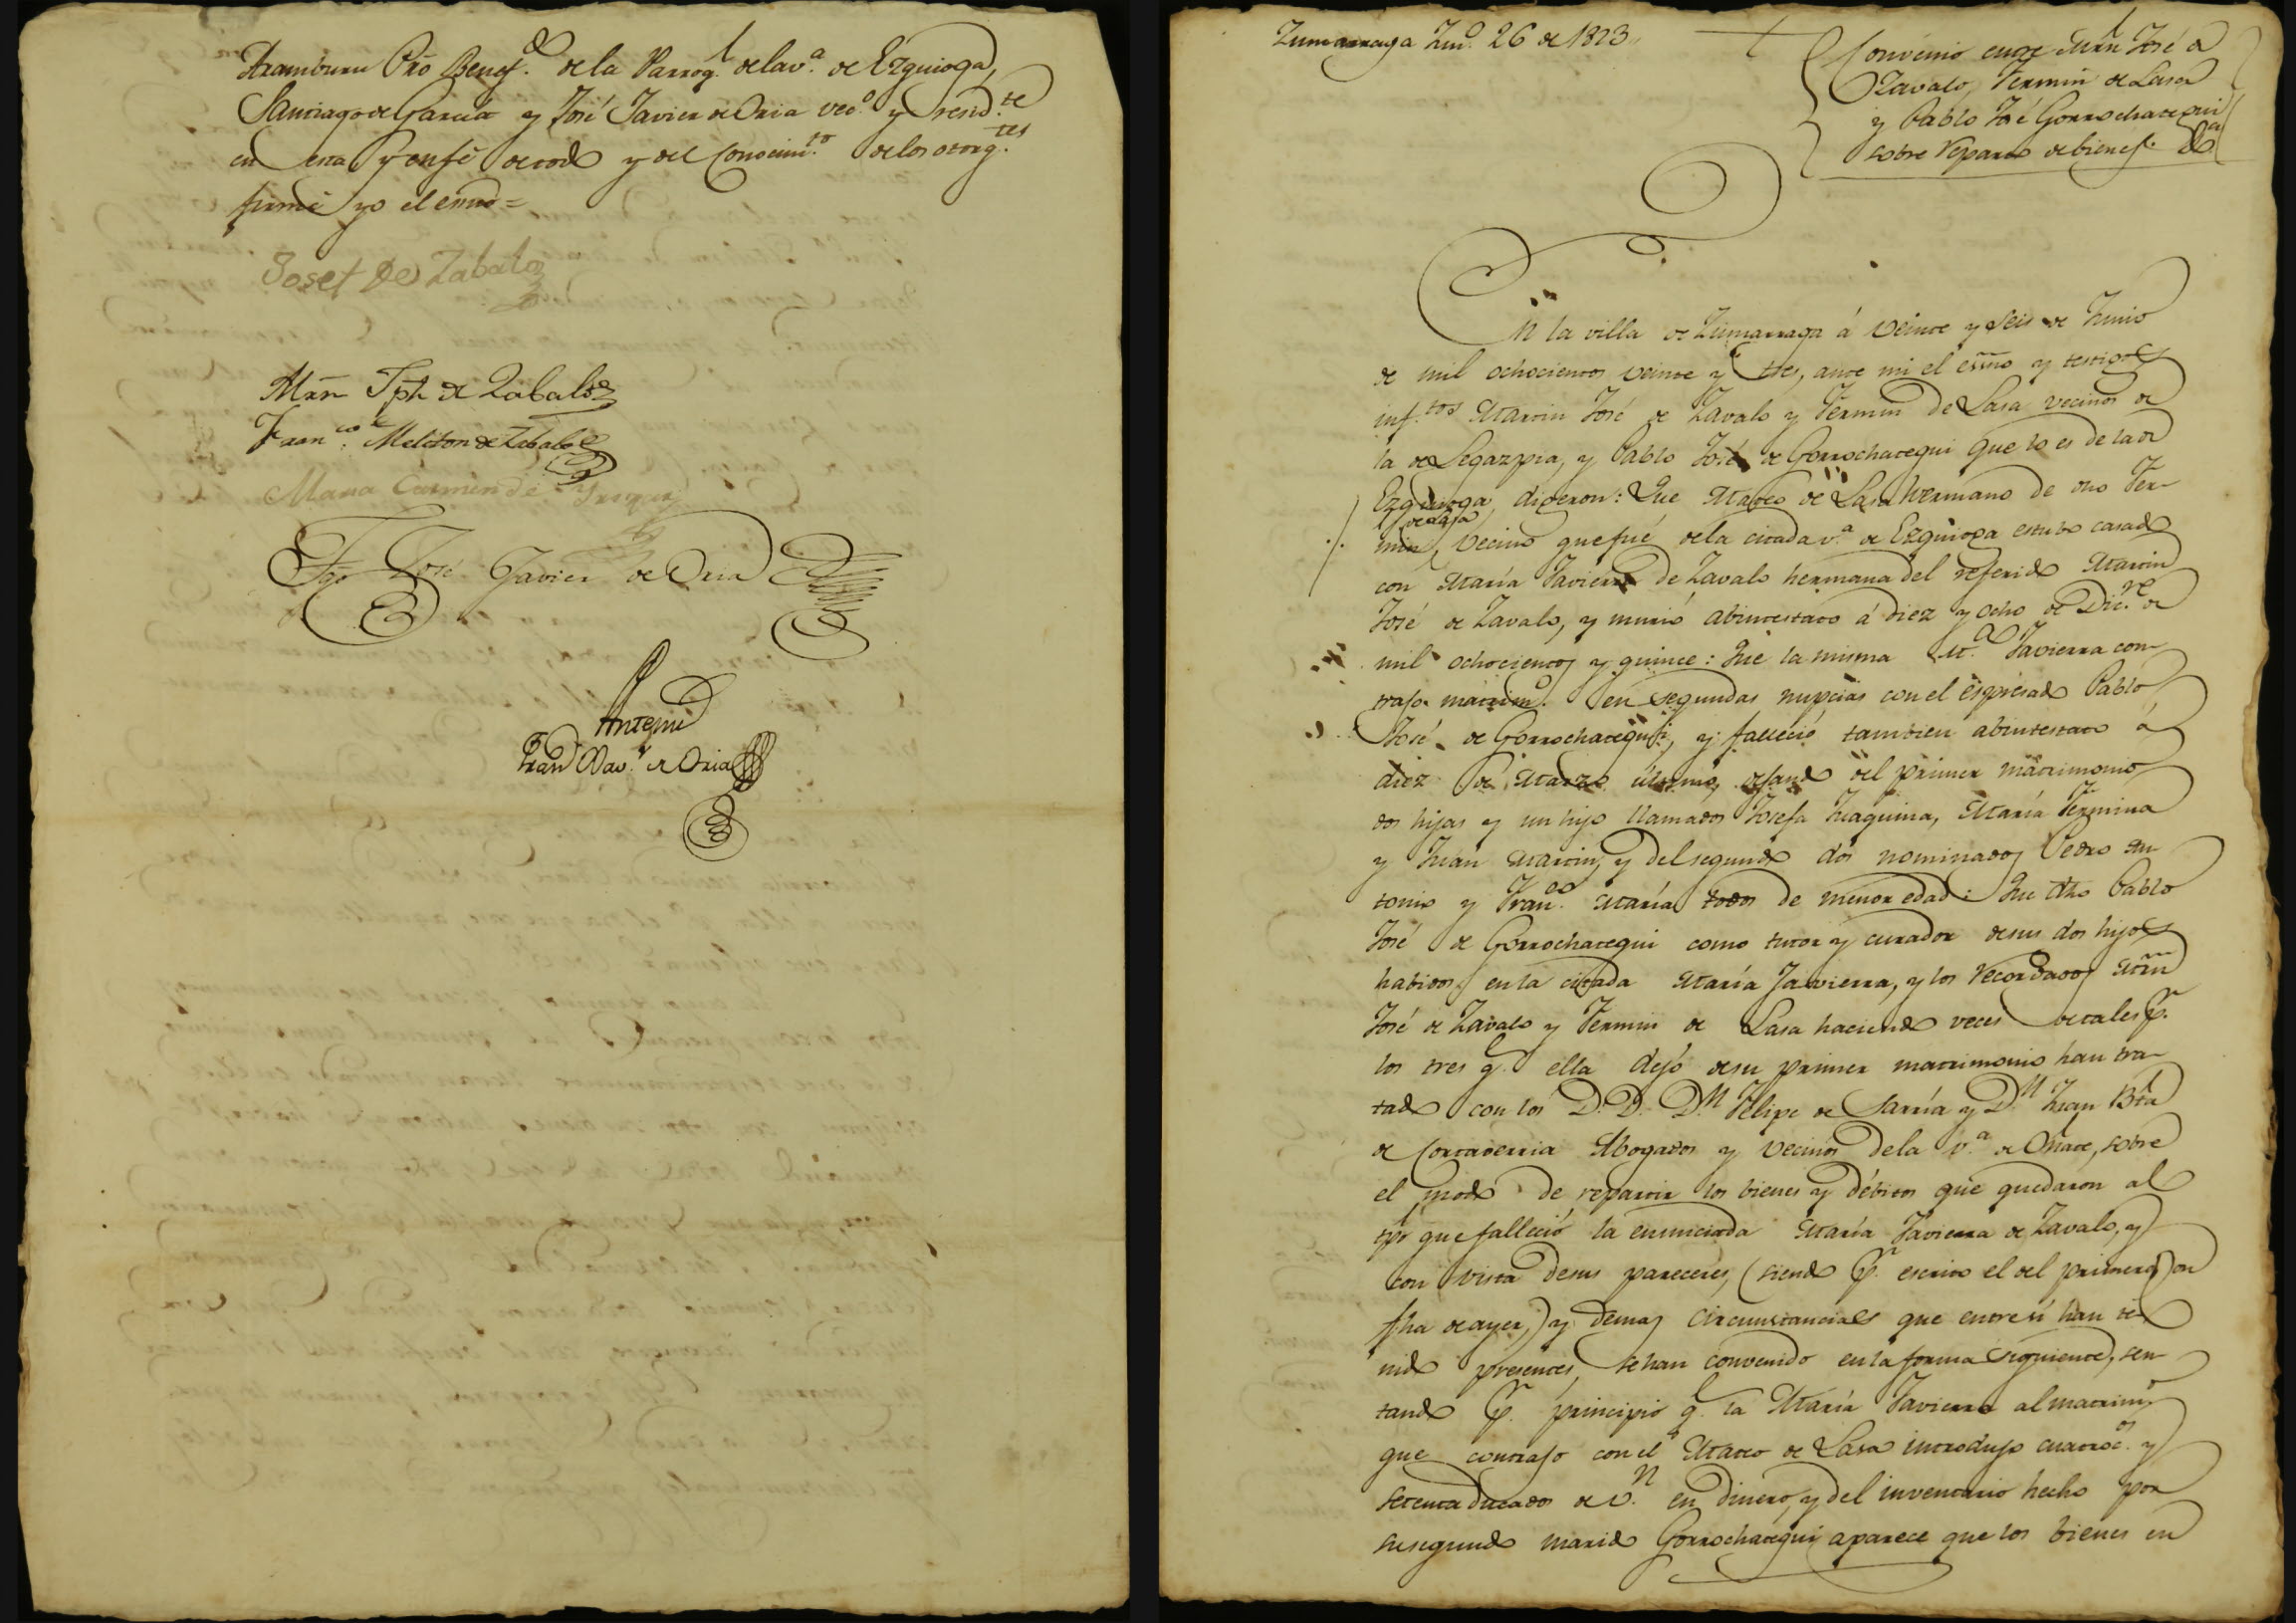 Aramburu Pro Benefdo. de la Parroql. de la va. de Ezquioga,
Santiago de Garcia y José Javier de Oria veco. y residte.
en esta y enfé de todo y del conocimto. de los otorgtes.
firmé yo el esno =
Josef De Zabalo
Mrn Jph de Zabalo
Franco. Meliton de Zabalo
Maria Carmen de
Tgo José Javier de Oria
Antemi
Franco Xavr. de Oria
Zumarraga Juno. 26 de 1823
Convenio entre Mrn José de
Zavalo, Fermin de Lasa
y Pablo José Gorrochategui
sobre reparto de bienes. &a
En la villa de Zumarraga á veinte y seis de Junio
de mil ochocientos veinte y tres, ante mi el esño y testigos
inftos. Martin José de Zavalo y Fermin de Lasa vecinos de
la de Legazpia, y Pablo José de Gorrochategui que lo es de la de
Ezquioga, digeron: Que Mateo de Lasa hermano de dho Fer-
de Lasa
min, vecino que fué de la citada va. de Ezquioga estubo casado
con María Javierra de Zavalo hermana del referido Martin
José de Zavalo, y murió abintestato á diez y ocho de Dicre. de
mil ochocientos y quince: Que la misma Ma. Javierra con-
trajo matrimo. en segundas nupcias con el espresado Pablo
José de Gorrochategui, y falleció tambien abintestato á
diez de Marzo último, dejando del primer matrimonio
dos hijas y un hijo llamados Josefa Juaquina, María Fermina
y Juan Martin, y del segundo dos nominados Pedro An-
tonio y Franco. María todos de menor edad: Que dho Pablo
José de Gorrochategui como tutor y curador de sus dos hijos
habidos en la citada María Javierra, y los recordados Mrn
José de Zavalo y Fermin de Lasa haciendo veces de tales pr.
los tres q. ella dejó de su primer matrimonio han tra-
tado con los D.D. Dn Felipe de Sarria y Dn Juan Bta
de Cortaverria Abogados y vecinos de la va. de Oñate, sobre
el modo de repartir los bienes y débitos que quedaron al
tpo que falleció la enunciada María Javierra de Zavalo, y
con vista de sus pareceres, (siendo pr. escrito el del primero con
fha de ayer,) y demas circunstancias que entre sí han te-
nido presentes, se han convenido en la forma siguiente, sen-
tando pr. principio q. la María Javierra al matrimo
que contrajo con el Mateo de Lasa introdujo cuatrocos. y
setenta ducados de vn. en dinero, y del inventario hecho por
su segundo marido Gorrochategui aparece que los bienes en